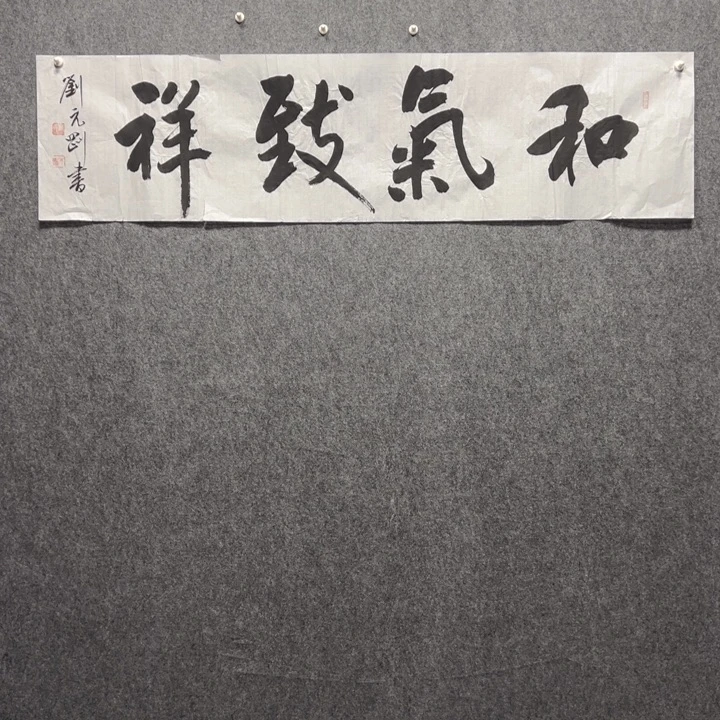 和氣致祥
劉元剛書